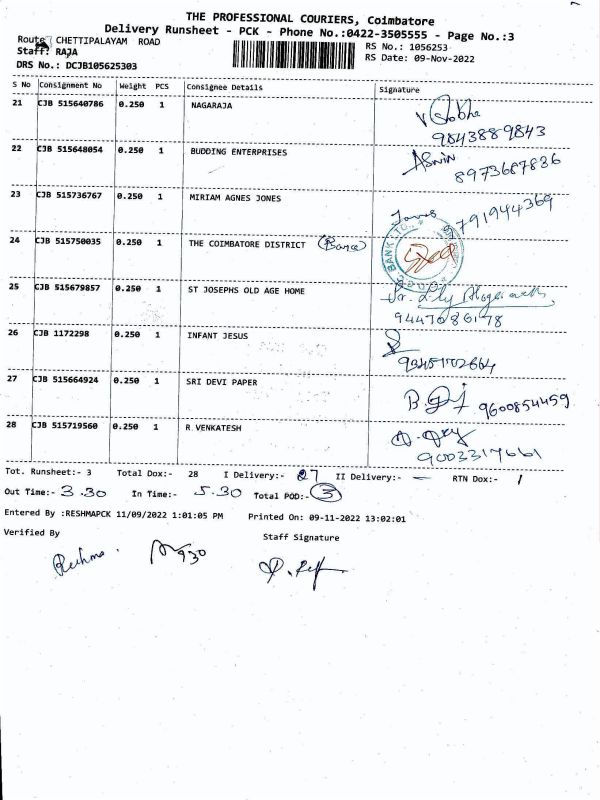 THE PROFESSIONAL COURIERS, Coimbatore
Delivery Runsheet - PCK - Phone No.:0422-3505555 - Page No.:3
Route CHETTIPALAYAM ROAD
RS No.: 1056253
Staff: RAJA
RS Date: 09-Nov-2022
DRS No.: DCJB105625303
S No Consignment No Weight PCS Consignee Details Signature
21 CJB 515640786 0.250 1 NAGARAJA
9843889843
22 CJB 515648054 0.250 1 BUDDING ENTERPRISES Aswin
8973687836
23 CJB 515736767 0.250 1 MIRIAM AGNES JONES
791944369
24 CJB 515750035 0.250 1 THE COIMBATORE DISTRICT
BANK LTD
25 CJB 515679857 0.250 1 ST JOSEPHS OLD AGE HOME
9447086178
26 CJB 1172298 0.250 1 INFANT JESUS
27 CJB 515664924 0.250 1 SRI DEVI PAPER
9600854459
28 CJB 515719560 0.250 1 R.VENKATESH
9003317661
Tot. Runsheet:- 3 Total Dox:- 28 I Delivery:- 27 II Delivery:- — RTN Dox:- 1
Out Time:- 3.30 In Time:- 5.30 Total POD:- 3
Entered By :RESHMAPCK 11/09/2022 1:01:05 PM Printed On: 09-11-2022 13:02:01
Verified By Staff Signature
Reshma. 930